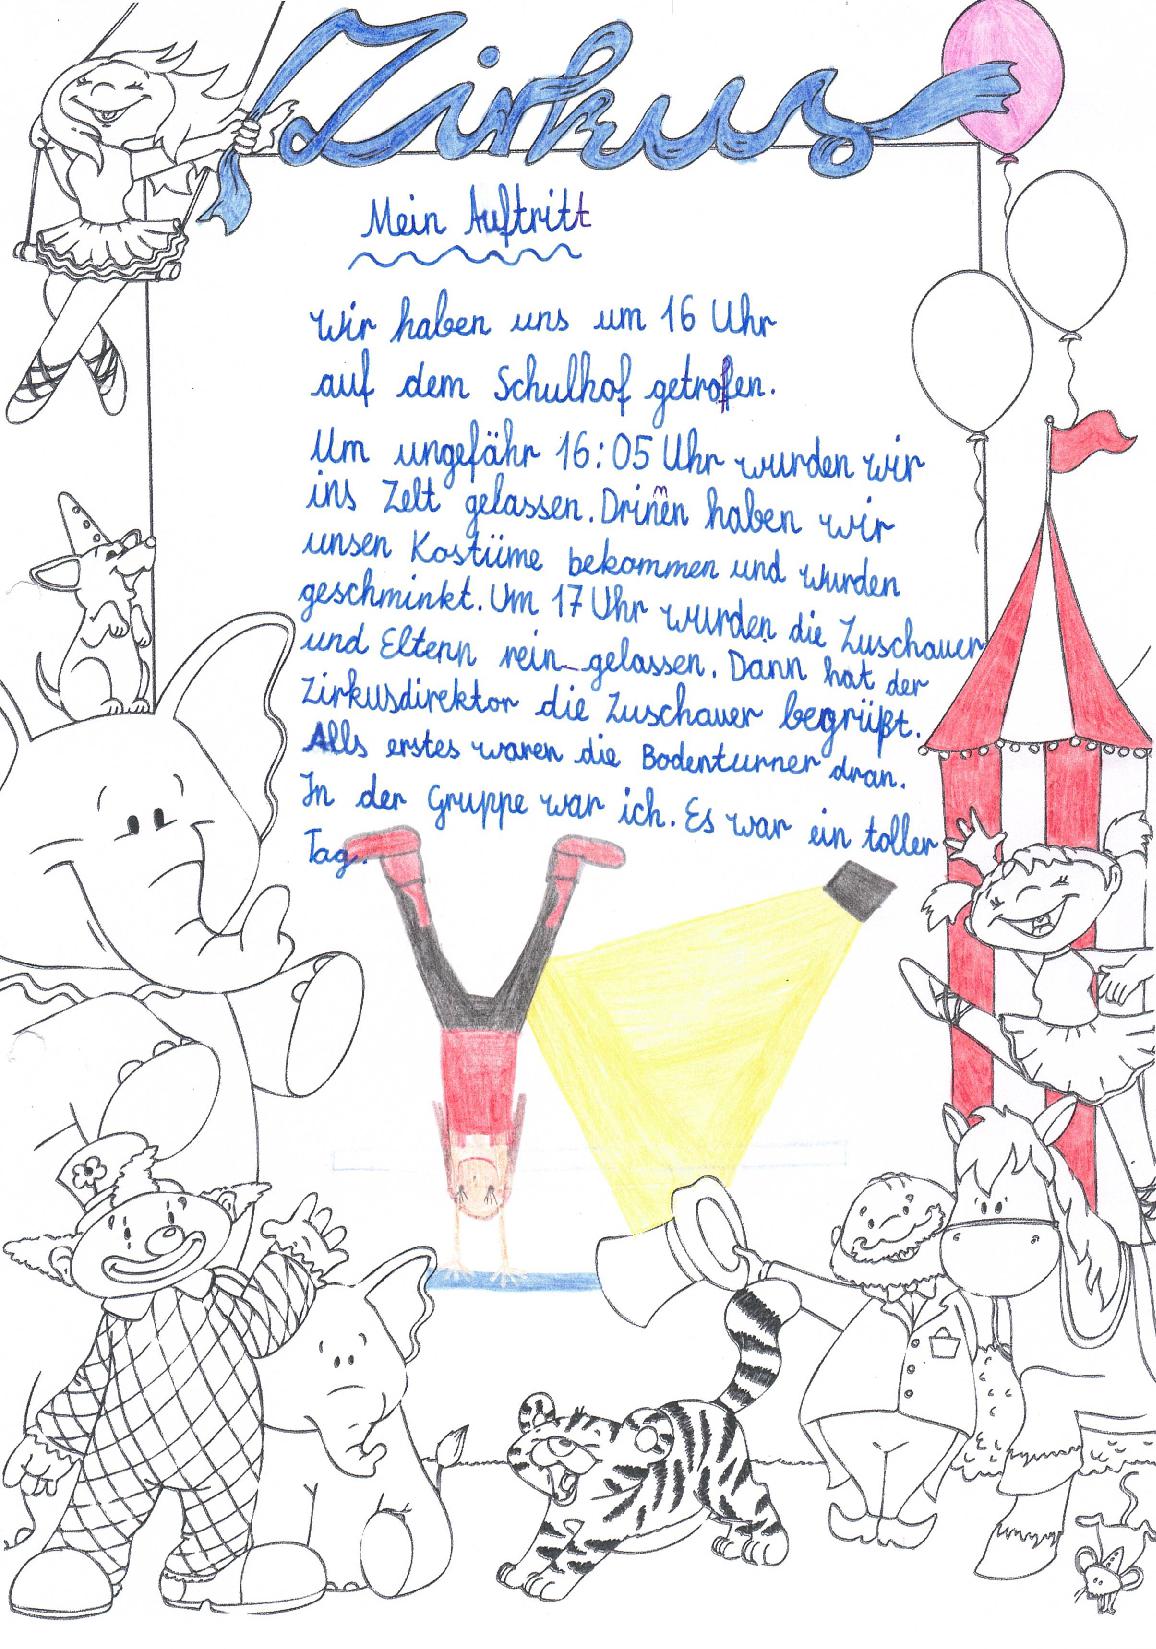 Zirkus
Mein Auftritt
Wir haben uns um 16 Uhr
auf dem Schulhof getrofen.
Um ungefähr 16:05 Uhr wurden wir
ins Zelt gelassen. Drinnen haben wir
unsen Kostüme bekommen und wurden
geschminkt. Um 17 Uhr wurden die Zuschauer
und Eltern rein_gelassen. Dann hat der
Zirkusdirektor die Zuschauer begrüßt.
Alls erstes waren die Bodenturner dran.
In der Gruppe war ich. Es war ein toller
Tag.